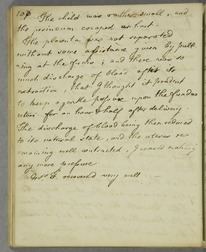 106
The child was rather small, and
the perineum escaped unhurt.
The placenta was not separated
without some assistance given by pull
ing at the funis; and there was so
much discharge of blood after its
extraction, that I thought it prudent
to keep a gentle pressure upon the fundus
uteri for an hour & half after delivery.
The discharge of blood being then reduced
to its natural state, and the uterus re
maining well contracted, I ceased making
any more pressure.
Mrs. F. recovered very well